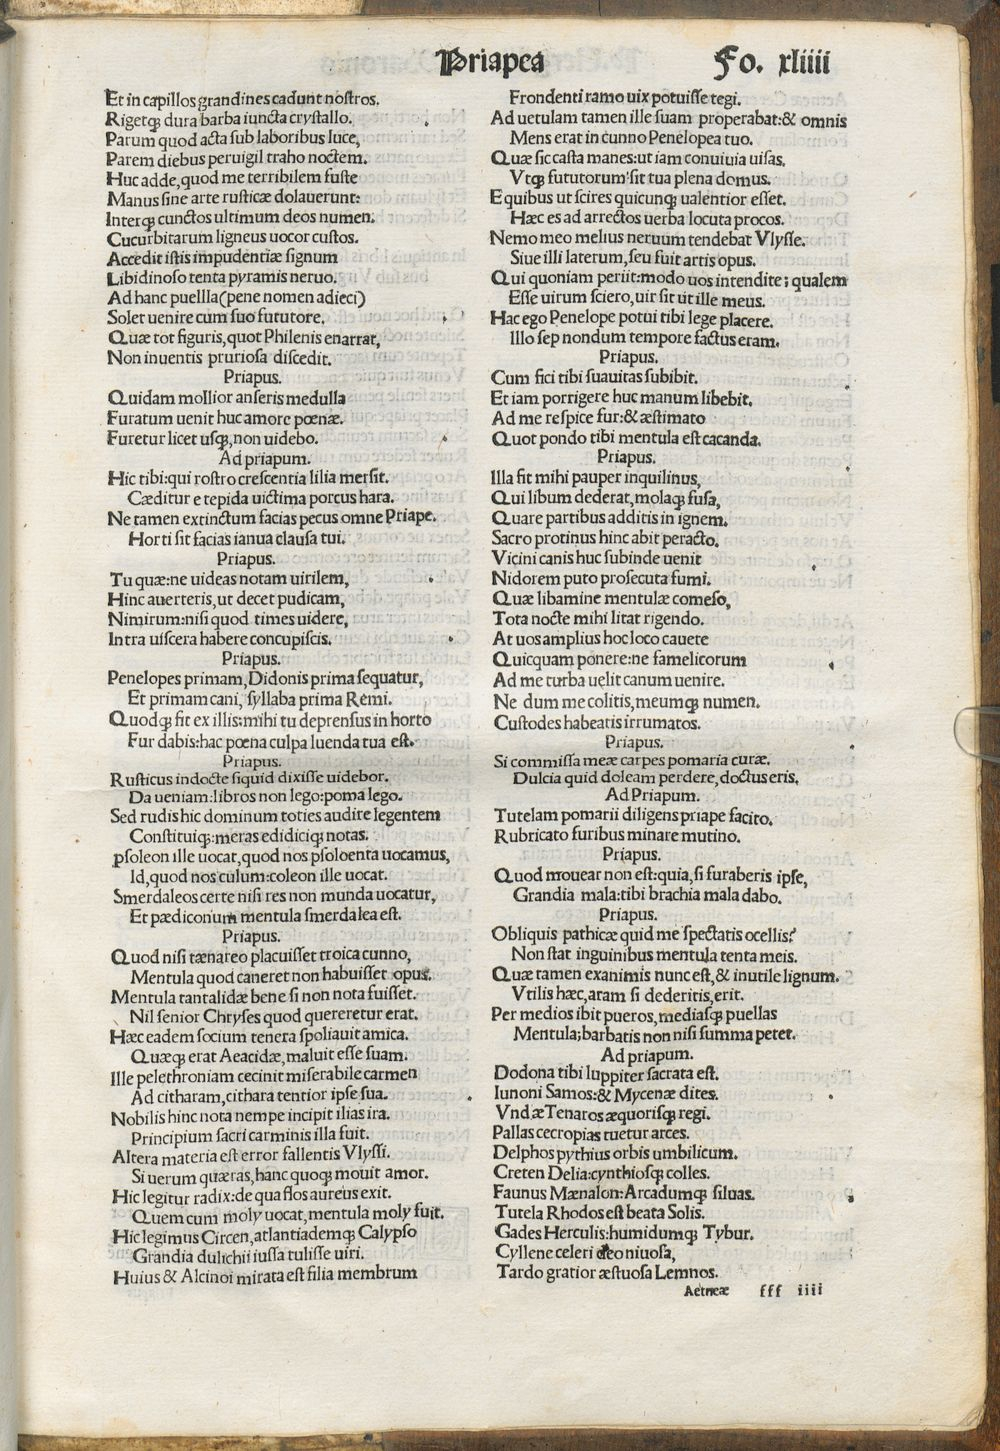 Priapea
Fo. xliiii
Et in capillos grandines cadunt nostros.
Rigetqꝫ dura barba iuncta crystallo.
Parum quod acta sub laboribus luce,
Parem diebus peruigil traho noctem.
Huc adde,quod me terribilem fuste
Manus sine arte rusticæ dolauerunt:
Interqꝫ cunctos ultimum deos numen.
Cucurbitarum ligneus uocor custos.
Accedit istis impudentiæ signum
Libidinoso tenta pyramis neruo.
Ad hanc puellla(pene nomen adieci)
Solet uenire cum suo fututore.
Quæ tot figuris,quot Philenis enarrat,
Non inuentis pruriosa discedit.
Priapus.
Quidam mollior anseris medulla
Furatum uenit huc amore pœnæ.
Furetur licet usqꝫ,non uidebo.
Ad priapum.
Hic tibi:qui rostro crescentia lilia mersit.
Cæditur e tepida uictima porcus hara.
Ne tamen extinctum facias pecus omne Priape.
Horti sit facias ianua clausa tui.
Priapus.
Tu quæ:ne uideas notam uirilem,
Hinc auerteris,ut decet pudicam,
Nimirum:nisi quod times uidere,
Intra uiscera habere concupiscis.
Priapus.
Penelopes primam,Didonis prima sequatur,
Et primam cani, syllaba prima Remi.
Quodqꝫ fit ex illis:mihi tu deprensus in horto
Fur dabis:hac pœna culpa luenda tua est.
Priapus.
Rusticus indocte siquid dixisse uidebor.
Da ueniam:libros non lego:poma lego.
Sed rudis hic dominum toties audire legentem
Constituiqꝫ:meras edidiciqꝫ notas.
psoleon ille uocat,quod nos psoloenta uocamus,
Id,quod nos culum:coleon ille uocat.
Smerdaleos certe nisi res non munda uocatur,
Et pædiconum mentula smerdalea est.
Priapus.
Quod nisi tænareo placuisset troica cunno,
Mentula quod caneret non habuisset opus.
Mentula tantalidæ bene si non nota fuisset.
Nil senior Chryses quod quereretur erat.
Hæc eadem socium tenera spoliauit amica.
Quæqꝫ erat Aeacidæ,maluit esse suam.
Ille pelethroniam cecinit miserabile carmen
Ad citharam,cithara tentior ipse sua.
Nobilis hinc nota nempe incipit ilias ira.
Principium sacri carminis illa fuit.
Altera materia est error fallentis Vlyssi.
Si uerum quæras,hanc quoqꝫ mouit amor.
Hic legitur radix:de qua flos aureus exit.
Quem cum moly uocat,mentula moly fuit.
Hic legimus Circen,atlantiademqꝫ Calypso
Grandia dulichii iussa tulisse uiri.
Huius & Alcinoi mirata est filia membrum
Frondenti ramo uix potuisse tegi.
Ad uetulam tamen ille suam properabat:& omnis
Mens erat in cunno Penelopea tuo.
Quæ sic casta manes:ut iam conuiuia uisas.
Vtqꝫ fututorum sit tua plena domus.
E quibus ut scires quicunqꝫ ualentior esset.
Hæc es ad arrectos uerba locuta procos.
Nemo meo melius neruum tendebat Vlysse.
Siue illi laterum,seu fuit artis opus.
Qui quoniam periit:modo uos intendite; qualem
Esse uirum sciero,uir sit ut ille meus.
Hac ego Penelope potui tibi lege placere.
Illo sep nondum tempore factus eram.
Priapus.
Cum fici tibi suauitas subibit.
Et iam porrigere huc manum libebit.
Ad me respice fur:& æstimato
Quot pondo tibi mentula est cacanda.
Priapus.
Illa fit mihi pauper inquilinus,
Qui libum dederat,molaqꝫ fusa,
Quare partibus additis in ignem.
Sacro protinus hinc abit peracto.
Vicini canis huc subinde uenit
Nidorem puto prosecuta fumi.
Quæ libamine mentulæ comeso,
Tota nocte mihi litat rigendo.
At uos amplius hoc loco cauete
Quicquam ponere:ne famelicorum
Ad me turba uelit canum uenire.
Ne dum me colitis,meumqꝫ numen.
Custodes habeatis irrumatos.
Priapus.
Si commissa meæ carpes pomaria curæ.
Dulcia quid doleam perdere,doctus eris.
Ad Priapum.
Tutelam pomarii diligens priape facito.
Rubricato furibus minare mutino.
Priapus.
Quod mouear non est:quia,si furaberis ipse,
Grandia mala:tibi brachia mala dabo.
Priapus.
Obliquis pathicæ quid me spectatis ocellis?
Non stat inguinibus mentula tenta meis.
Quæ tamen exanimis nunc est,& inutile lignum.
Vtilis hæc,aram si dederitis,erit.
Per medios ibit pueros,mediasqꝫ puellas
Mentula;barbatis non nisi summa petet.
Ad priapum.
Dodona tibi Iuppiter sacrata est.
Iunoni Samos:& Mycenæ dites.
Vndæ Tenaros æquorisqꝫ regi.
Pallas cecropias tuetur arces.
Delphos pythius orbis umbilicum.
Creten Delia:cynthiosqꝫ colles.
Faunus Mænalon:Arcadumqꝫ siluas.
Tutela Rhodos est beata Solis.
Gades Herculis:humidumqꝫ Tybur.
Cyllene celeri deo niuosa,
Tardo gratior æstuosa Lemnos.
Aetneæ fff iiii